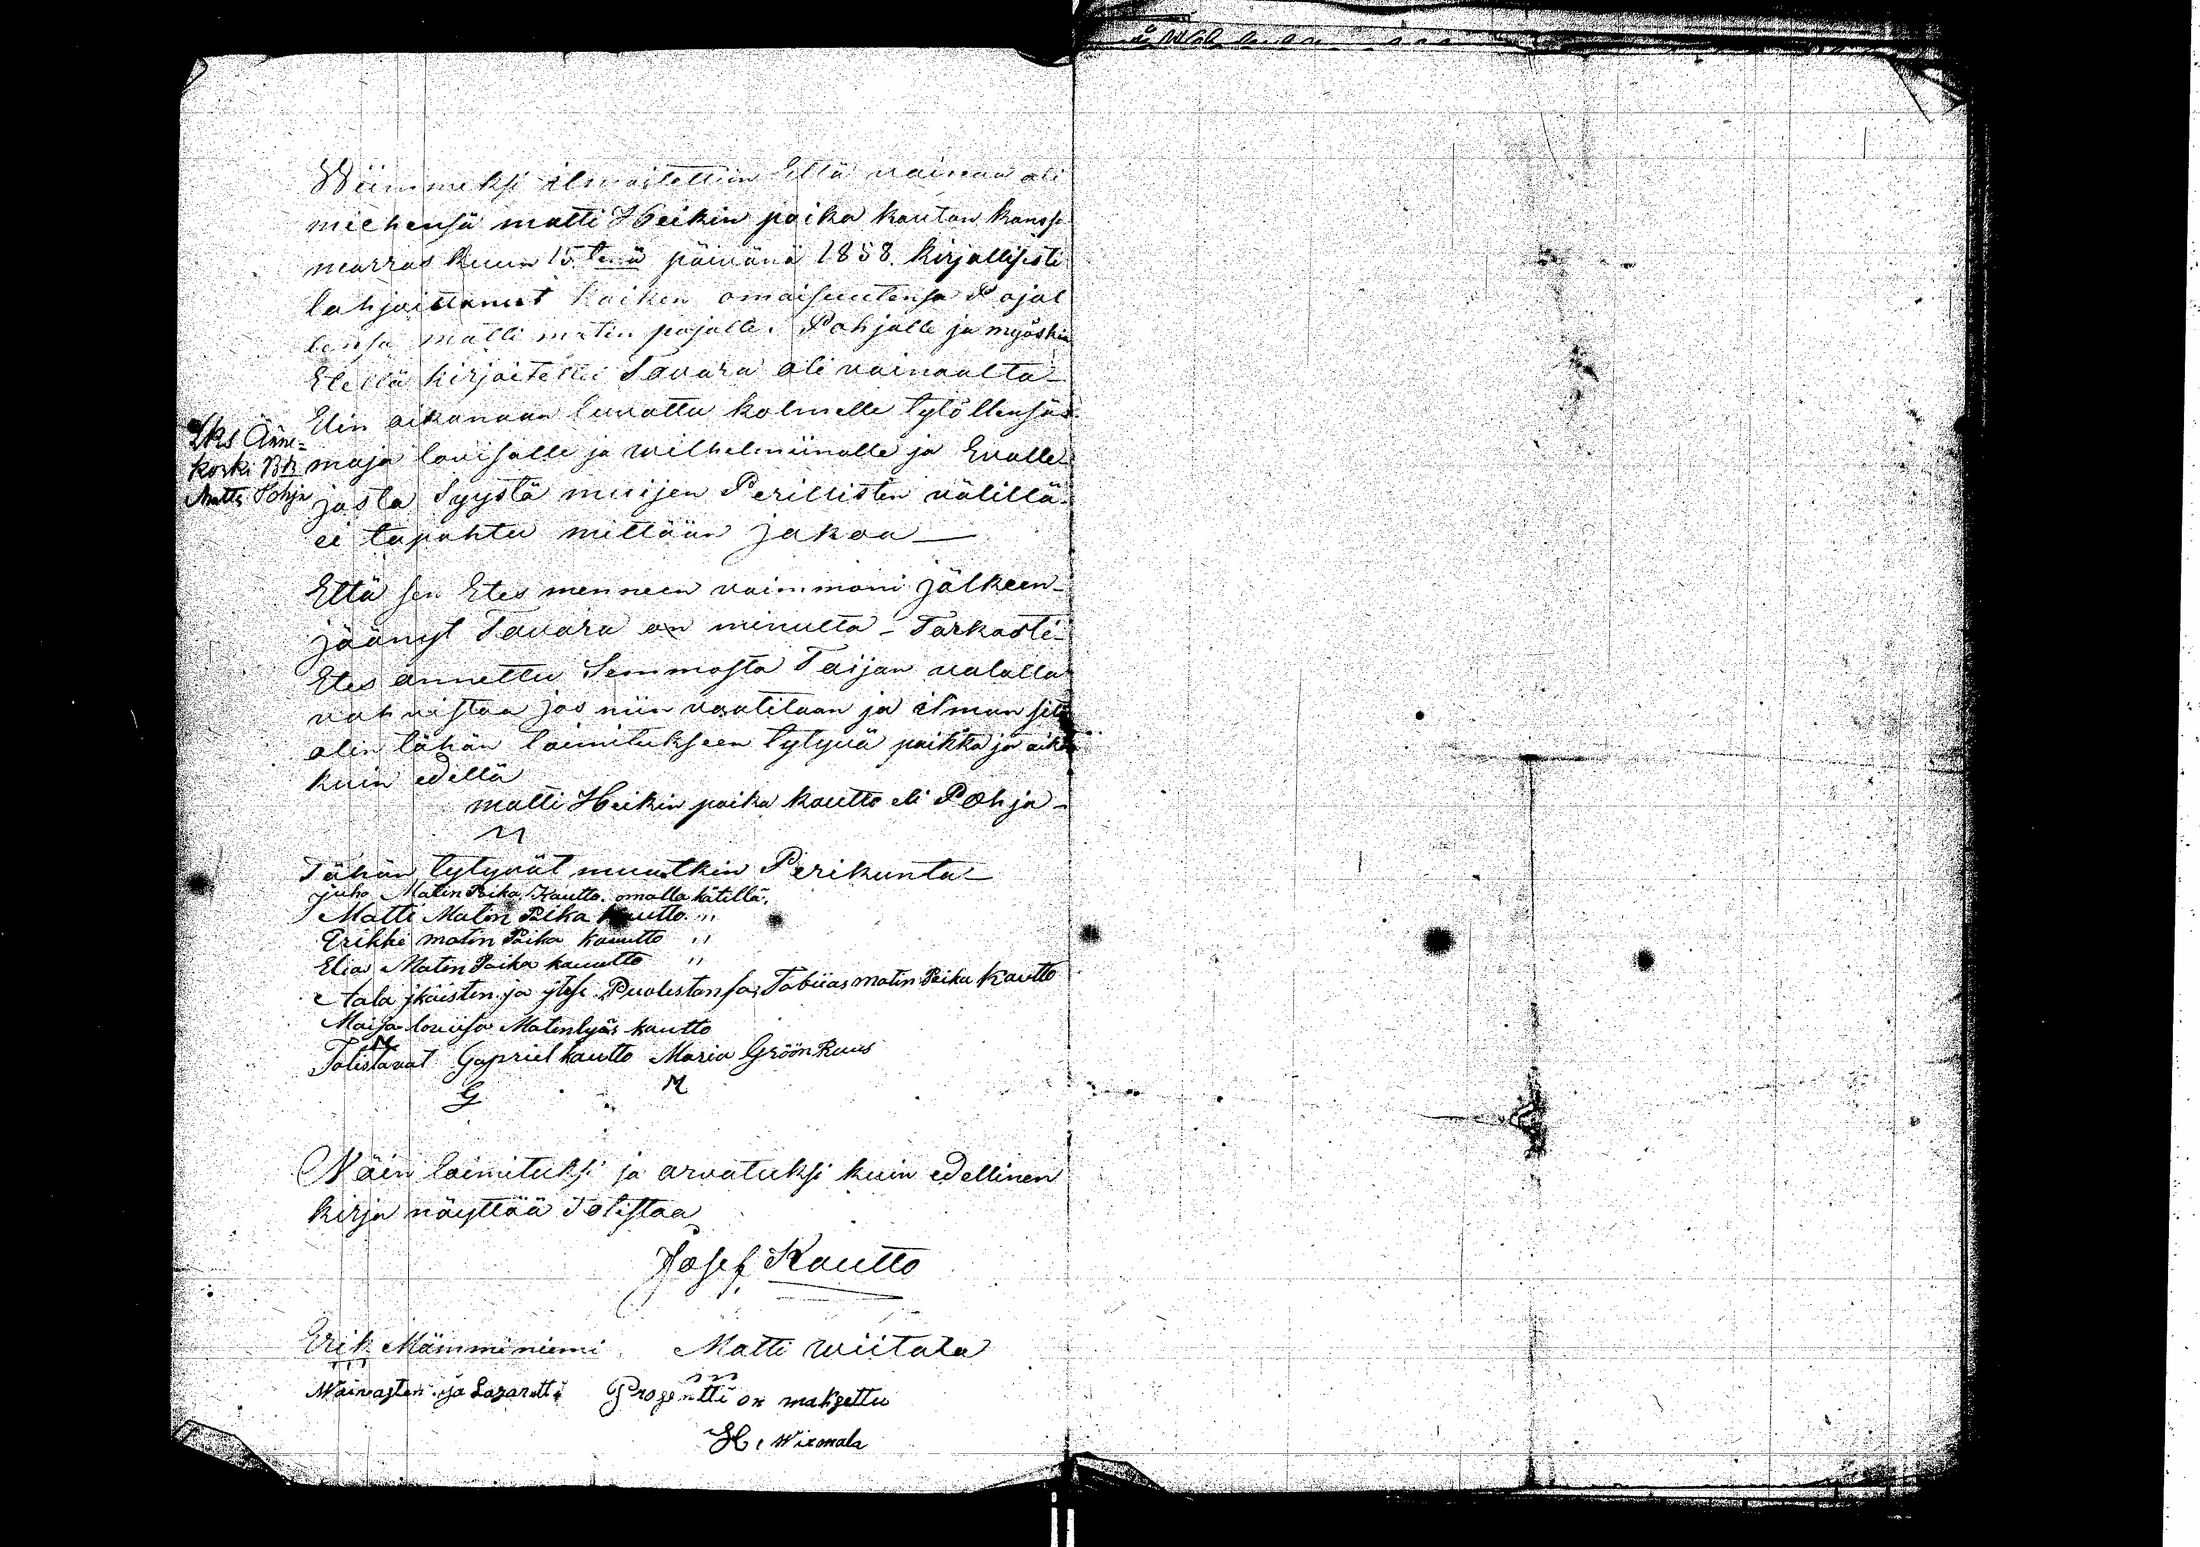 Wiimmeksi ilmoitettiin Että vainaa oli
miehensä matti Heikin poika kautan kanssa
marras kuun 15 tenä päivänä 1858. kirjallisesti
lahjoittanut kaiken omaisuutensa Pojal
lensa matti matin pojalle. Pohjalle ja myöskin
Edellä kirjoitettu Tavara oli vainaalta
Elin aikanaan luvattu kolmelle tytöllensä
maja lovisalle ja wilhelmiinalle ja Evalle
josta Syystä muijen Perillisten välillä
ei tapahtu mittään jakoa —
Iks Ääne-
koski Btr
Matts Pohja
Että sen Etes menneen vaimmoni jälkeen-
jäänyt Tavara on minulta - Tarkasti-
Etes annettu Semmosta Taijan valalla
vahvistaa jos niin vaatitaan ja ilman sitä
olen tähän toimitukseen tytyvä paikka ja aika
kuin edellä
matti Heikin poika kautto eli Pohja -
M
Tähän tytyvät muutkin Perikunta -
Juho Matin Poika Kautto. omalla kätillä.
Matti Matin Poika Kautto. "
Erikki matin Poika kauutto "
Elias Matin Poika kauutto "
Aala jkäisten ja ittse Puolestansa, Tobiias matin Poika Kautto
Maija lovisa Matintytär kautto
M
Totistavat Gapriel kautto Maria Gröön Ruus
G M
Näin toimituksi ja arvatuksi kuin edellinen
kirja näyttää Totistaa
Josef Kautto
Erik Mämminiemi Matti Wiitala
Waivasten ja Lazaretti Prosentti on maksettu
H. Wiemala